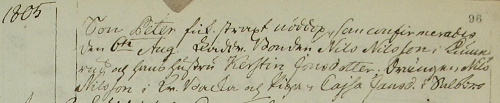 1805 96
Son Peter föd. strax nöddöpt, sen confirmerades
den 6te Aug. Bonden Nils Nilsson i
ryd och hans hustru Kerstin Jonsdotter. Drängen Nils
Nilsson i och Pigan Cajsa Jonsd. i